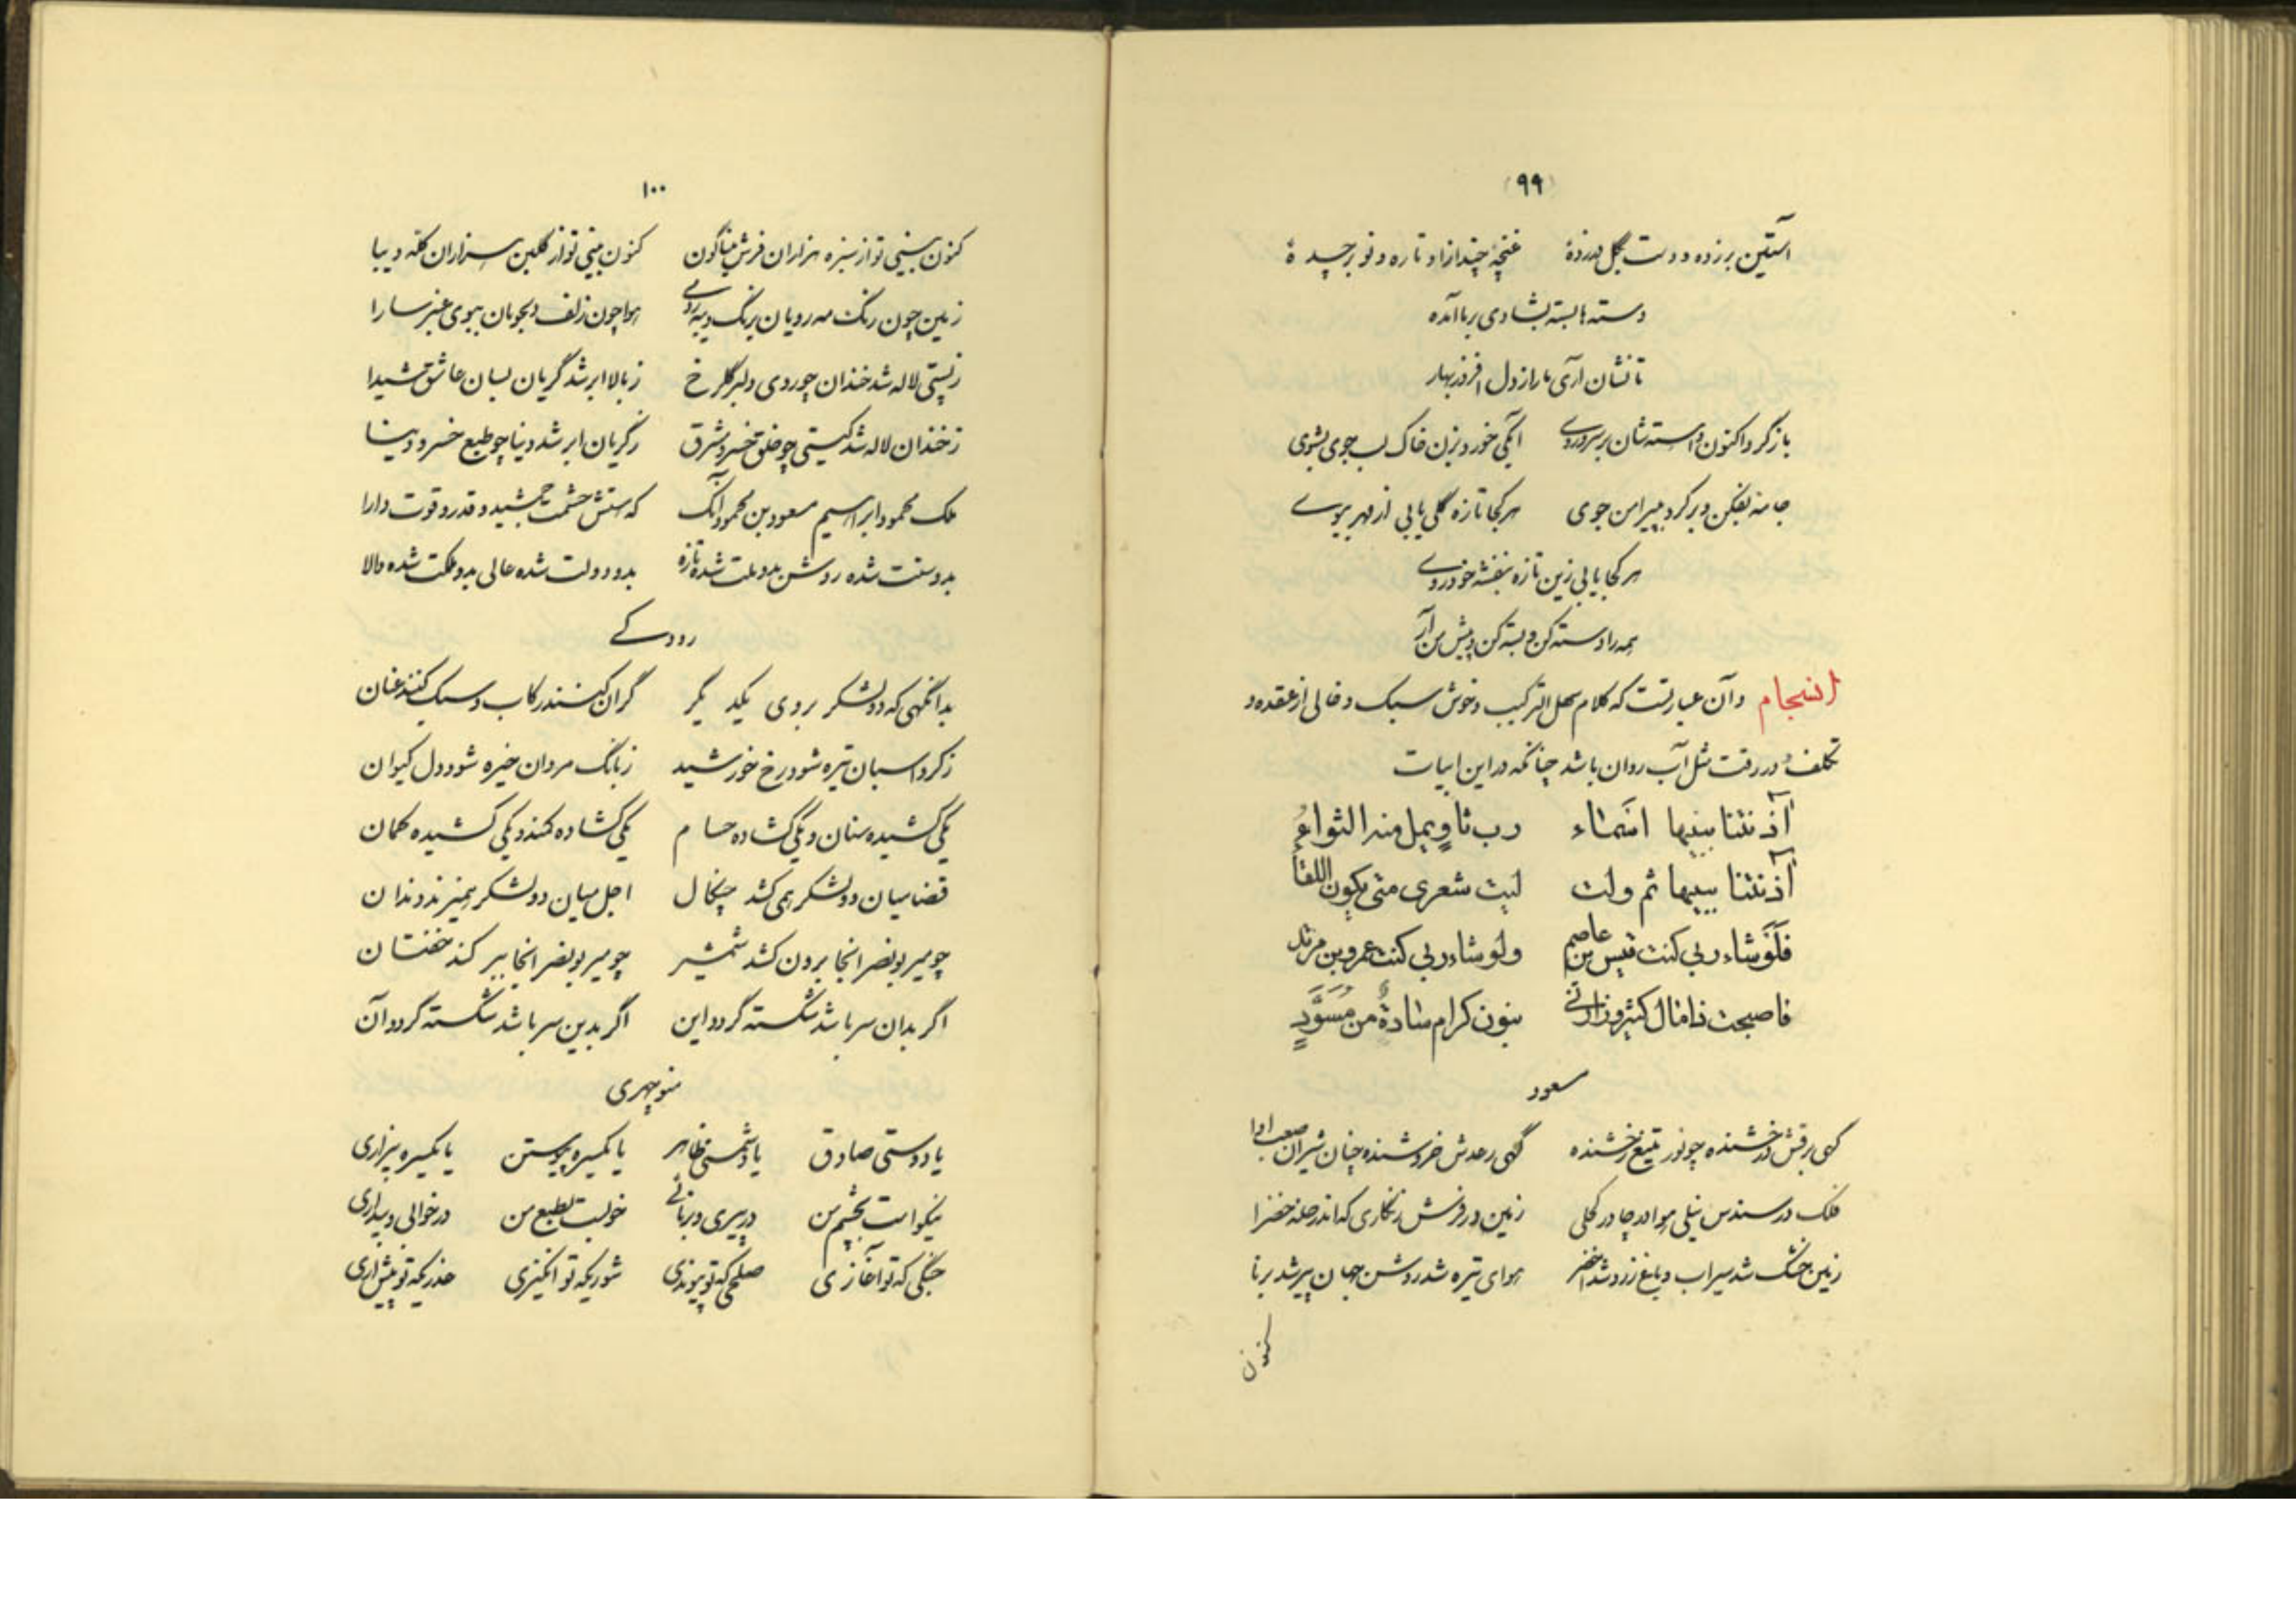 (۹۹)
آستین برزده و دست بگل درزدهٔ غنچهٔ چند ازاو تازه و نو برچیدهٔ
دسته‌ها بسته بشادی برما آمده
تا نشان آری ما را ز دل افروز بهار
باز کرد اکنون و دسته‌شان بر سر روی آبکی خورد بزن خاک لب جوی بشوی
جامه بفکن و برگرد بپیرامن جوی هر کجا تازه گلی یابی از مهر ببوے
هر کجا یابی زین تازه بنفشه خودروے
همه را دسته کن و بسته کن و پیش من آر
انسجام و آن عبارتست که کلام سهل الترکیب و خوش سبک و خالی از عقده و
تکلف و در رقت مثل آب روان باشد چنانکه در این ابیات
آذنتنا ببینها اسماء رب ثاوٍ یمل منه الثواءُ
آذنتنا ببینها ثم ولت لیت شعری متی یکون اللقاءُ
فلَوشاء ربی کنت قیس بن عاصم ولو شاء ربی کنت عمرو بن مرثد
فاصبحت ذا مال کثیر وزارنی بنون کرام سادةٌ من مُسَوَّدٍ
مسعود
گهی برقش درخشنده چو نور تیغ رخشنده گهی رعدش خروشنده چنان شیران صعب اوا
فلک در سندس نیلی هوا در چادر کحلی زمین در فرش زنگاری که اندر حله خضرا
زمین خشک شد سیراب و باغ زرد شد اخضر هوای تیره شد روشن جهان پیر شد برنا
کنون
۱۰۰
کنون بینی تو از سبزه هزاران فرش میناگون کنون بینی تو از گلبن هزاران کله دیبا
زمین چون رنگ مه رویان برنگ دیبه رومی هوا چون زلف دلجویان ببوی عنبر سارا
ز پستی لاله شد خندان چو روی دلبر گلرخ ز بالا ابر شد گریان بسان عاشق شیدا
ز خندان لاله شد گیتی چو خلق خسرو شرق ز گریان ابر شد دنیا چو طبع خسرو دینا
ملک محمود ابراهیم مسعود بن محمود آنک که هستش حشمت جمشید و قدر و قوت دارا
بدو سنت شده روشن بدو ملت شده تازه بدو دولت شده عالی بدو ملکت شده والا
رودکے
بدانگهی که دو لشکر بروی یکدیگر گران کنند رکاب و سبک کنند عنان
ز گرد اسبان تیره شود رخ خورشید ز بانگ مردان خیره شود دل کیوان
یکی کشیده سنان و یکی گشاده حسام یکی گشاده کمند و یکی کشیده کمان
قضا میان دو لشکر همی کشد چنگال اجل میان دو لشکر همیزند دندان
چو میر بو نصر انجا برون کشد شمشیر چو میر بو نصر انجا ببر کند خفتان
اگر بدان سر باشد شکسته گردد این اگر بدین سر باشد شکسته گردد آن
منوچهری
یا دوستی صادق یا دشمنی ظاهر یا یکسره پیوستن یا یکسره بیزاری
نیکوست بچشم من در پیری و برنائی خوبست بطبع من در خوابی و بیداری
جنگی که تو آغازی صلحی که تو پیوندی شوریکه تو انگیزی عذریکه تو پیش آری